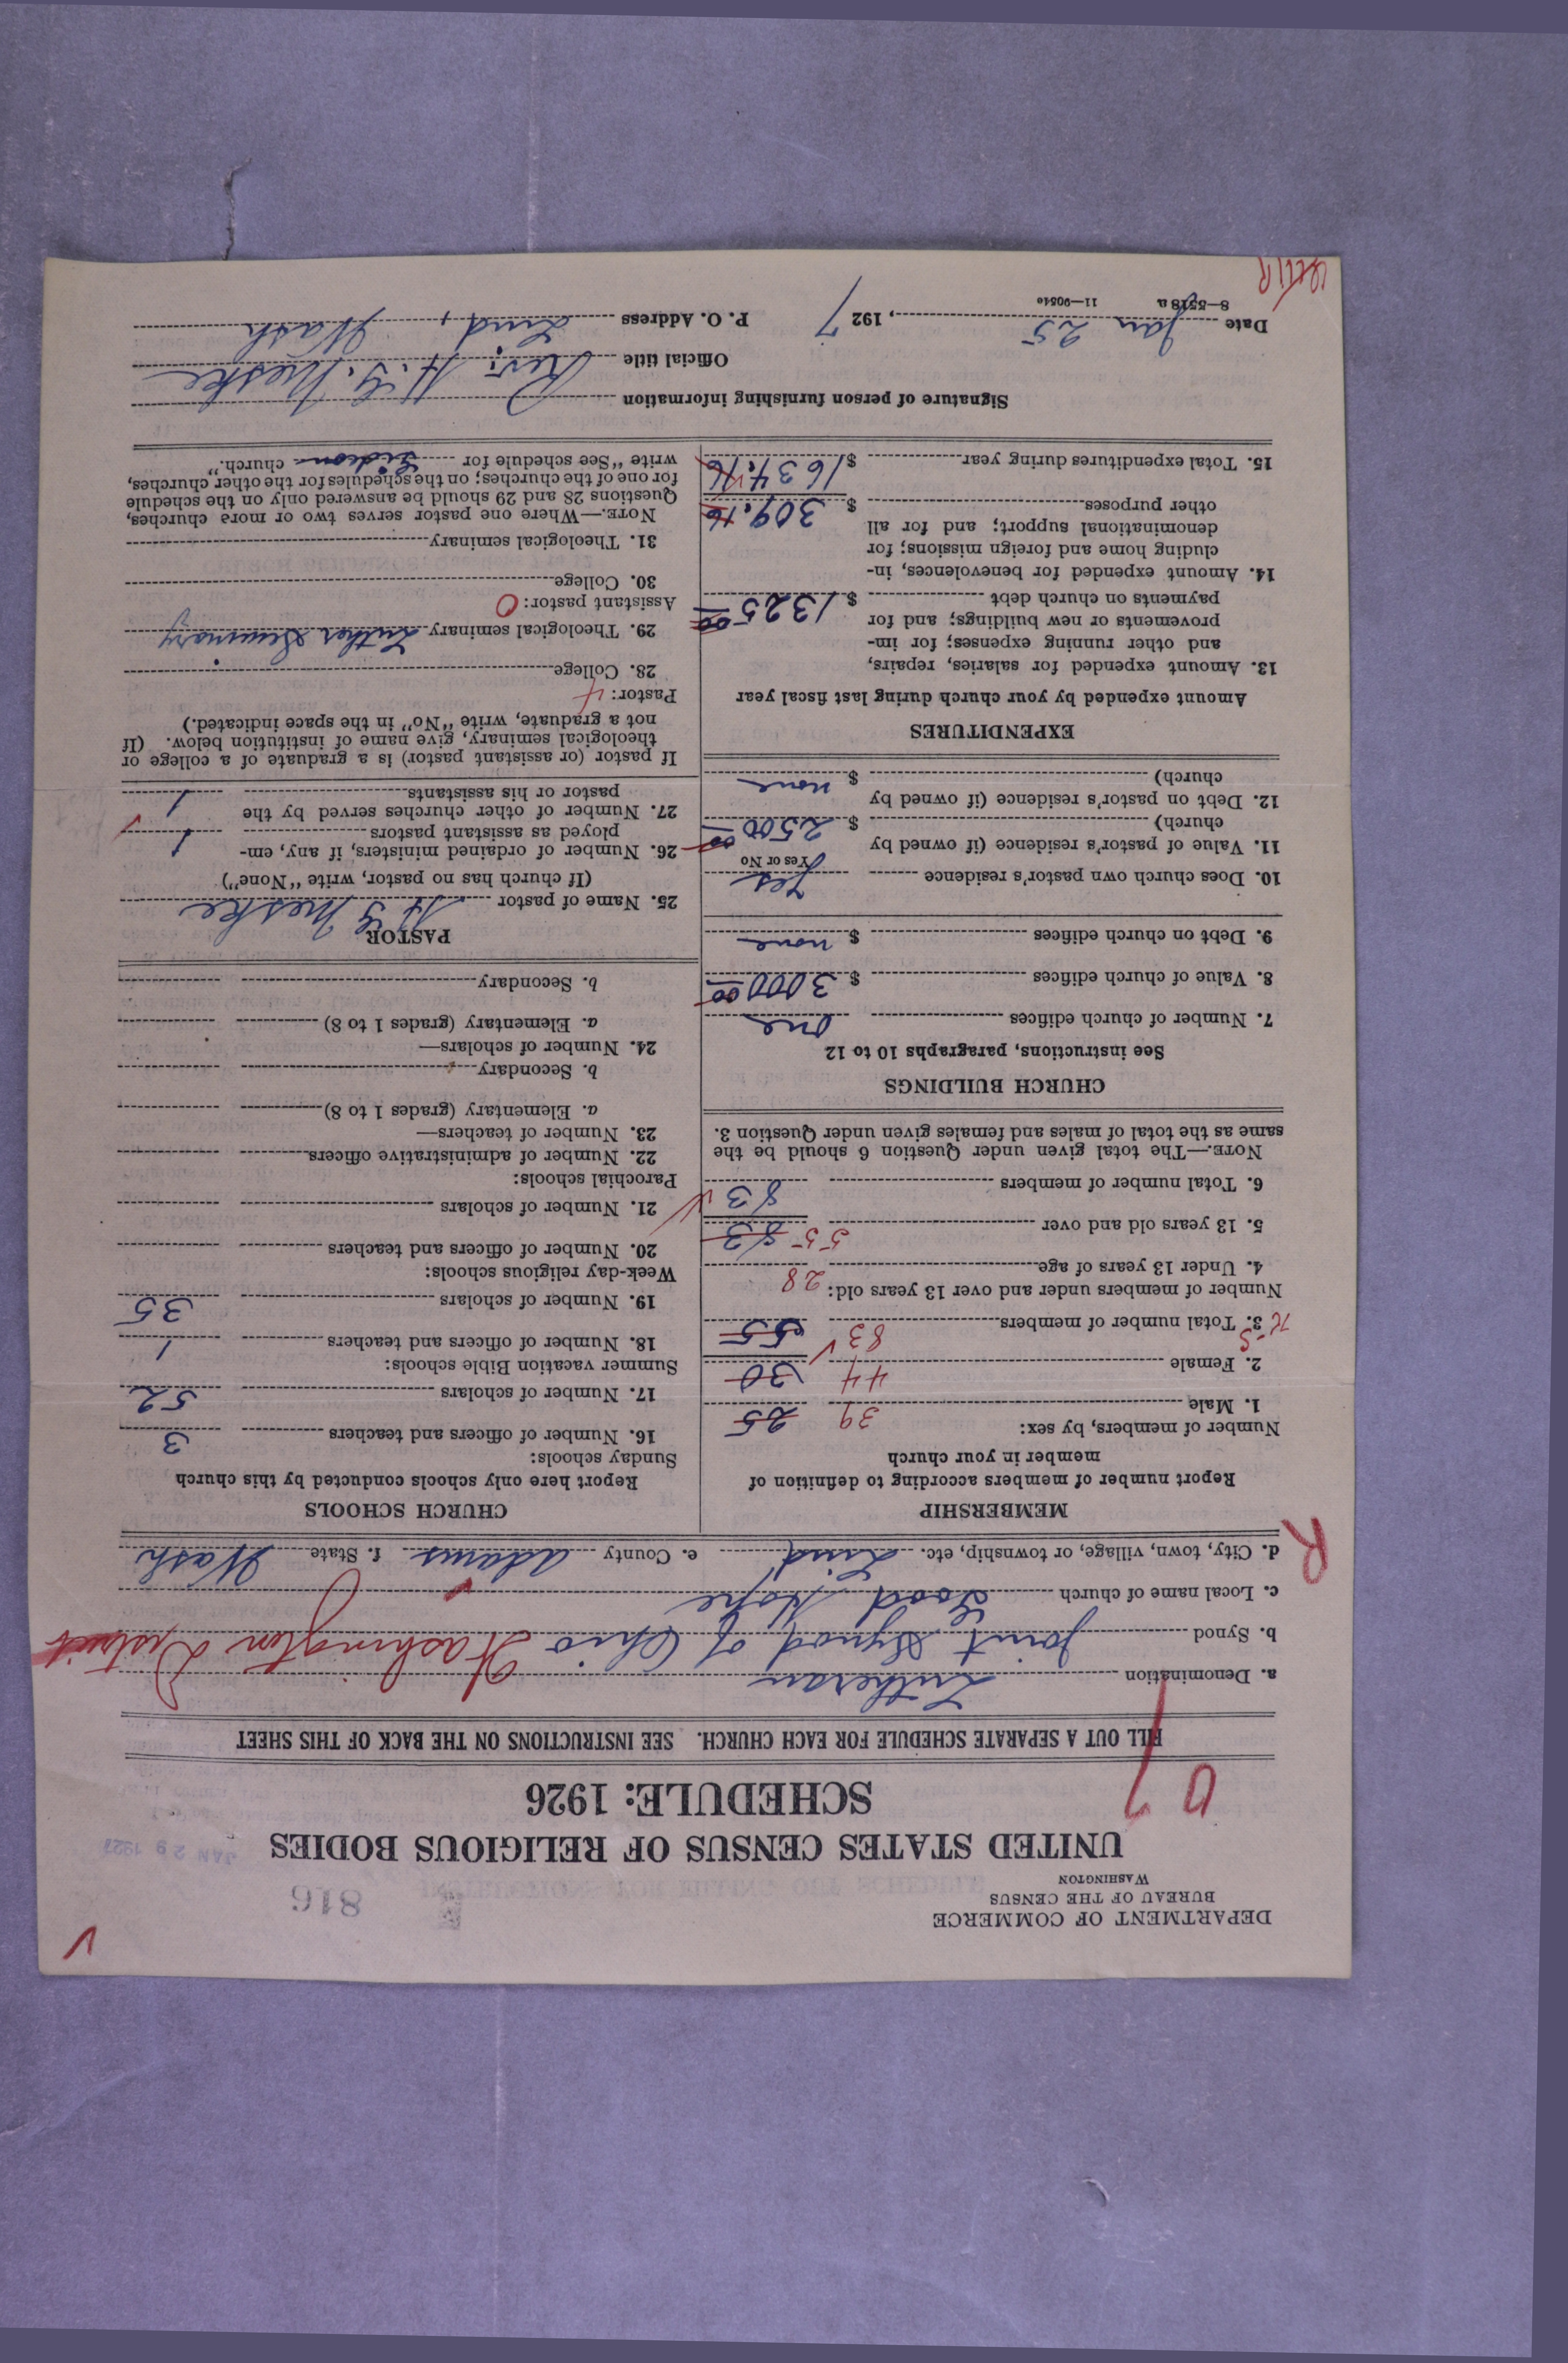 DEPARTMENT OF COMMERCE
BUREAU OF THE CENSUS
WASHINGTON
816
JAN 29 1927
UNITED STATES CENSUS OF RELIGIOUS BODIES
SCHEDULE: 1926
FILL OUT A SEPARATE SCHEDULE FOR EACH CHURCH. SEE INSTRUCTIONS ON THE BACK OF THIS SHEET
a. Denomination Lutheran
b. Synod Joint Synod of Ohio Washington District
c. Local name of church Good Hope
d. City, town, village, or township, etc. Lind e. County Adams f. State Wash
R
MEMBERSHIP
Report number of members according to definition of
member in your church
Number of members, by sex:
1. Male 39 25
2. Female 44 30
3. Total number of members 83 55
Number of members under and over 13 years old:
4. Under 13 years of age 28
5. 13 years old and over 55 83
6. Total number of members 83
NOTE.—The total given under Question 6 should be the
same as the total of males and females given under Question 3.
CHURCH BUILDINGS
See instructions, paragraphs 10 to 12
7. Number of church edifices one
8. Value of church edifices $ 3000 00
9. Debt on church edifices $ none
10. Does church own pastor's residence Yes
Yes or No
11. Value of pastor's residence (if owned by
church) $ 2500 00
12. Debt on pastor's residence (if owned by
church) $ none
EXPENDITURES
Amount expended by your church during last fiscal year
13. Amount expended for salaries, repairs,
and other running expenses; for im-
provements or new buildings; and for
payments on church debt $ 1325 00
14. Amount expended for benevolences, in-
cluding home and foreign missions; for
denominational support; and for all
other purposes $ 309.16
15. Total expenditures during year $ 1634.16
CHURCH SCHOOLS
Report here only schools conducted by this church
Sunday schools:
16. Number of officers and teachers 3
17. Number of scholars 52
Summer vacation Bible schools:
18. Number of officers and teachers 1
19. Number of scholars 35
Week-day religious schools:
20. Number of officers and teachers
21. Number of scholars
Parochial schools:
22. Number of administrative officers
23. Number of teachers—
a. Elementary (grades 1 to 8)
b. Secondary
24. Number of scholars—
a. Elementary (grades 1 to 8)
b. Secondary
PASTOR
25. Name of pastor H G Meske
(If church has no pastor, write "None")
26. Number of ordained ministers, if any, em-
ployed as assistant pastors 1
27. Number of other churches served by the
pastor or his assistants 1
If pastor (or assistant pastor) is a graduate of a college or
theological seminary, give name of institution below. (If
not a graduate, write "No" in the space indicated.)
Pastor:
28. College
29. Theological seminary Luther Seminary
Assistant pastor: 0
30. College
31. Theological seminary
NOTE.—Where one pastor serves two or more churches,
Questions 28 and 29 should be answered only on the schedule
for one of the churches; on the schedules for the other churches,
write "See schedule for church."
Signature of person furnishing information
Official title Rev. H. G. Meske
Date Jan 25, 1927 P. O. Address Lind, Wash
8—5518a 11—9054o